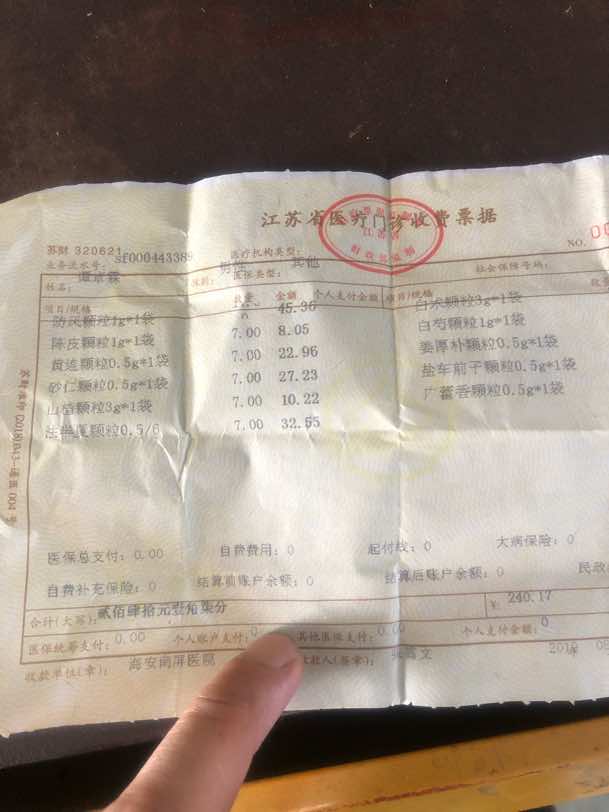 江苏省医疗门诊收费票据
苏财 320621
医疗机构类型:
NO.
业务流水号: sf000443389
医保类型: 其他
社会保障号码:
姓名:
性别:
项目/规格
数量 金额 个人支付金额 项目/规格
防风颗粒1g*1袋 45.36 白术颗粒3g*1袋
陈皮颗粒1g*1袋 7.00 8.05 白芍颗粒1g*1袋
黄连颗粒0.5g*1袋 7.00 22.96 姜厚朴颗粒0.5g*1袋
砂仁颗粒0.5g*1袋 7.00 27.23 盐车前子颗粒0.5g*1袋
7.00 10.22 广藿香颗粒0.5g*1袋
7.00 32.55
医保总支付: 0.00 自费费用: 0 起付线: 0 大病保险: 0
自费补充保险: 0 结算前账户余额: 0 结算后账户余额: 0 民政
合计(大写): 贰佰肆拾元壹角柒分 ¥: 240.17
医保统筹支付: 0.00 个人账户支付: 0 其他医保支付: 0.00 个人支付金额: 0
收款单位(章): 海安南屏医院 收款人(签章):